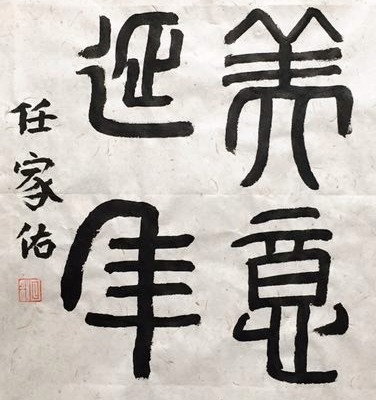 美意
延年
任家佑